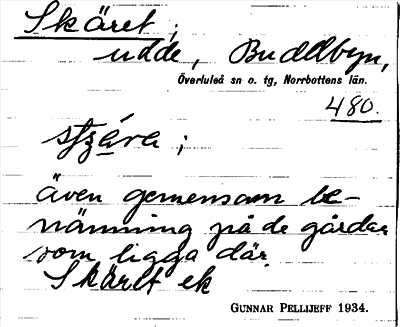 Skäret;
udde, Buddbyn,
Överluleå sn o. tg, Norrbottens län.
480.
även gemensam be-
nämning på de gårdar
som ligga där.
Skäret ek
GUNNAR PELLIJEFF 1934.